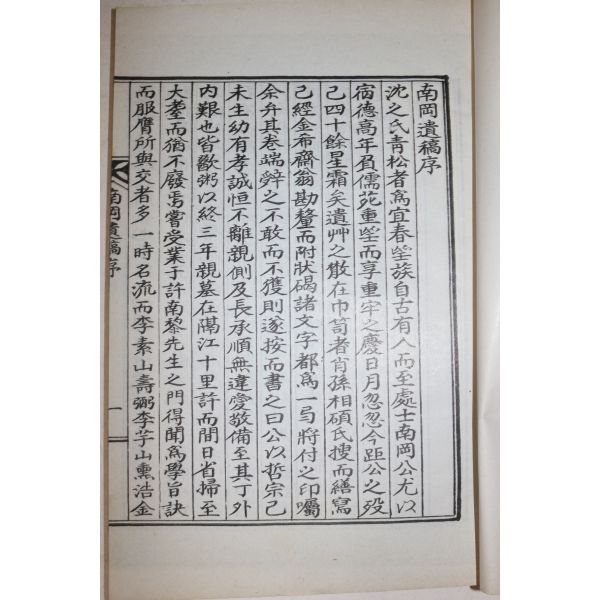 南岡遺稿序
沈之氏青松者爲宜春望族自古有人而至處士南岡公尤以
宿德高年負儒苑重望而享重牢之慶日月忽忽今距公之歿
已四十餘星霜矣遺艸之散在巾笥者肖孫相碩氏搜而繕寫
已經金希齋翁勘釐而附狀碣諸文字都爲一弓將付之印囑
余弁其卷端辭之不敢而不獲則遂按而書之曰公以哲宗己
未生幼有孝誠恒不離親側及長承順無違愛敬備至其丁外
内艱也皆歠粥以終三年親墓在隔江十里許而間日省掃至
大耋而猶不廢焉嘗受業于許南黎先生之門得聞爲學旨訣
而服膺所與交者多一時名流而李素山壽弼李芋山熏浩金
南岡遺稿序
一